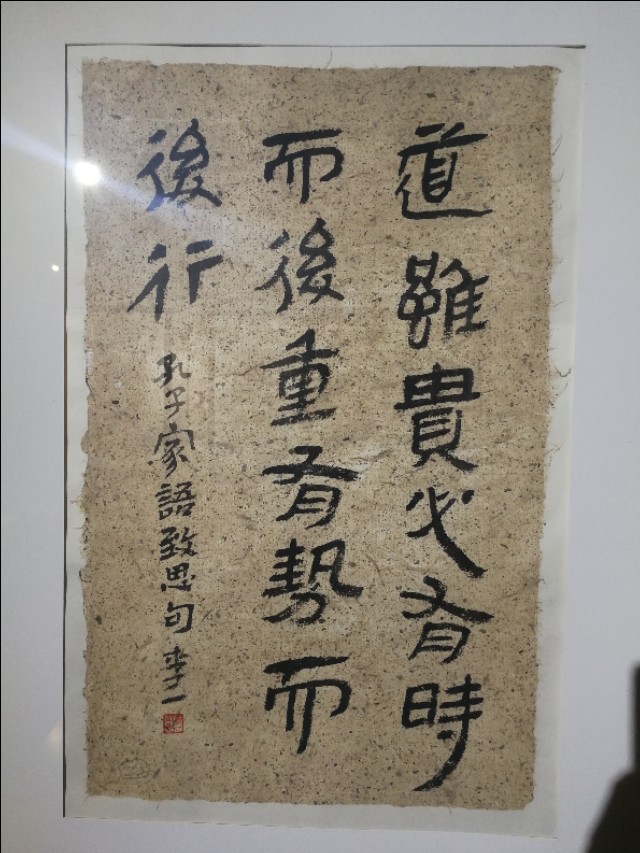 道雖貴必有時
而後重有勢而
後行
孔子家語致思句 李一